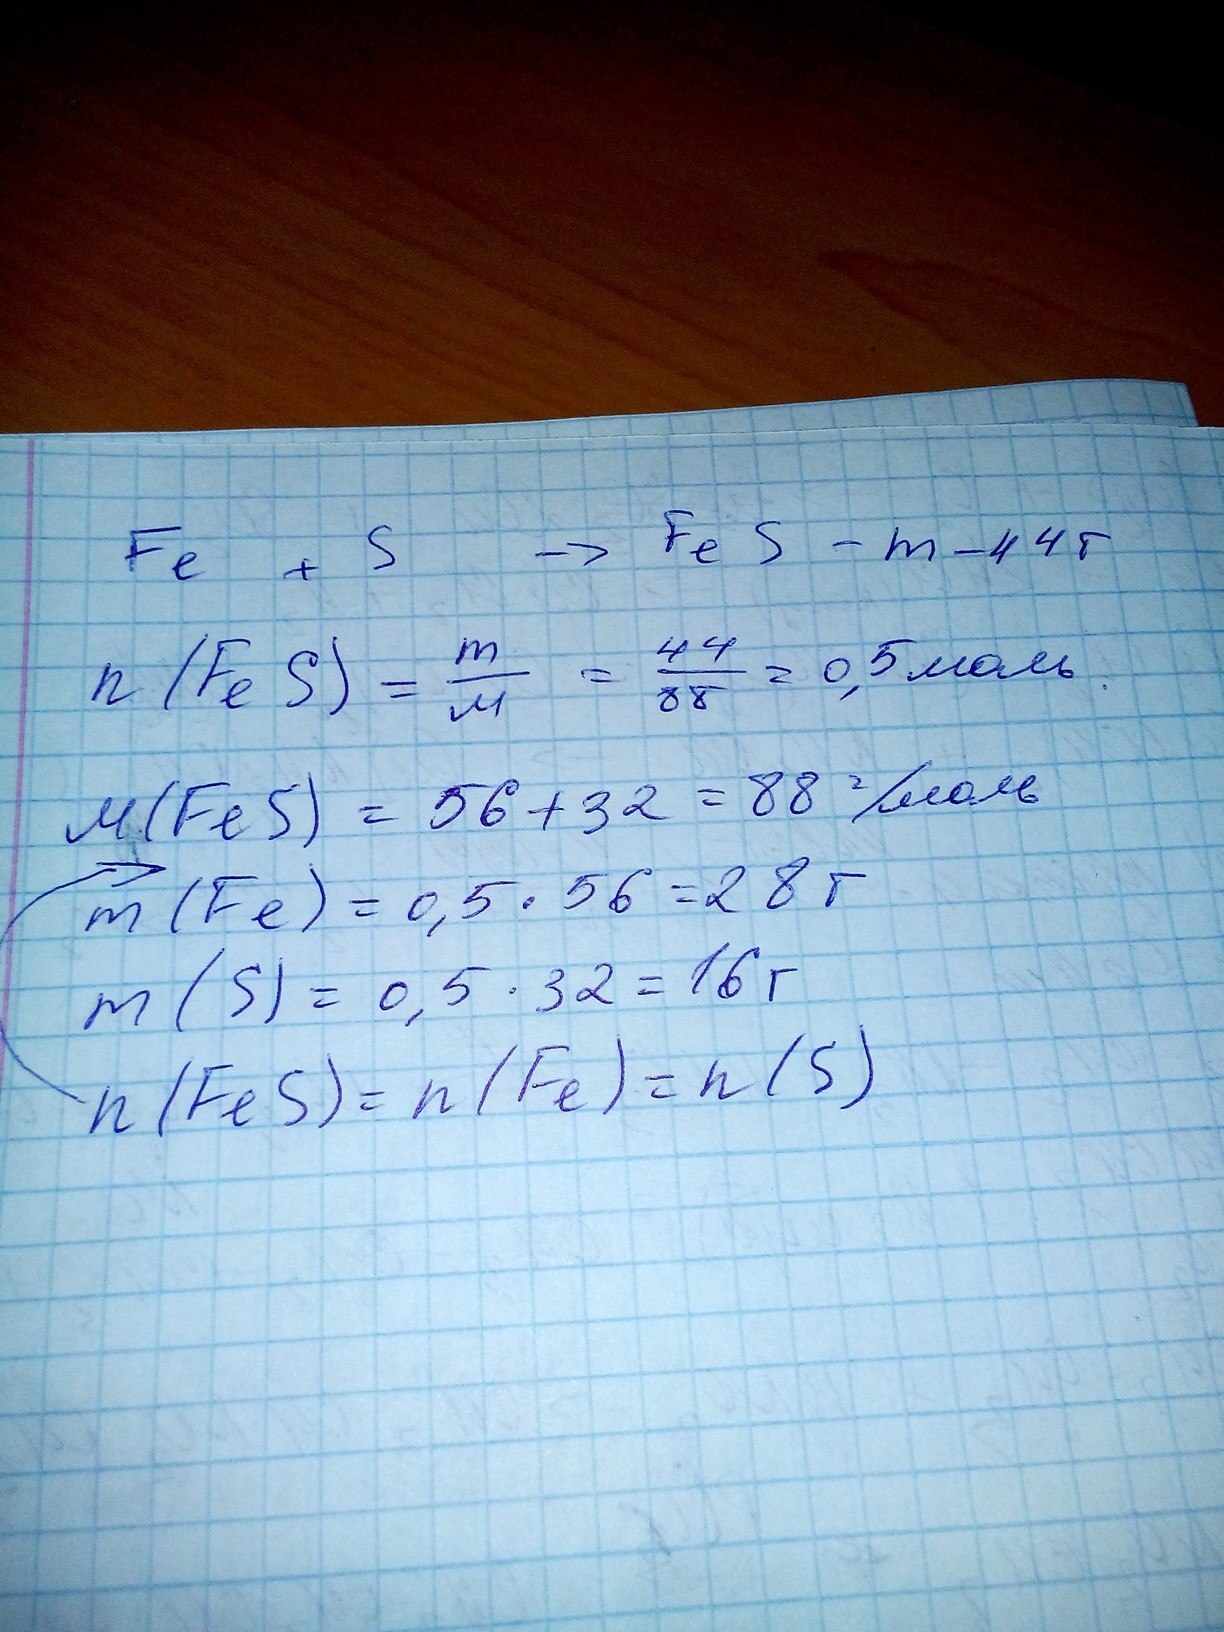 Fe + S → FeS - m - 44г
n(FeS) = m/М = 44/88 = 0,5 моль.
М(FeS) = 56 + 32 = 88 г/моль
m(Fe) = 0,5 · 56 = 28 г
m(S) = 0,5 · 32 = 16 г
n(FeS) = n(Fe) = n(S)